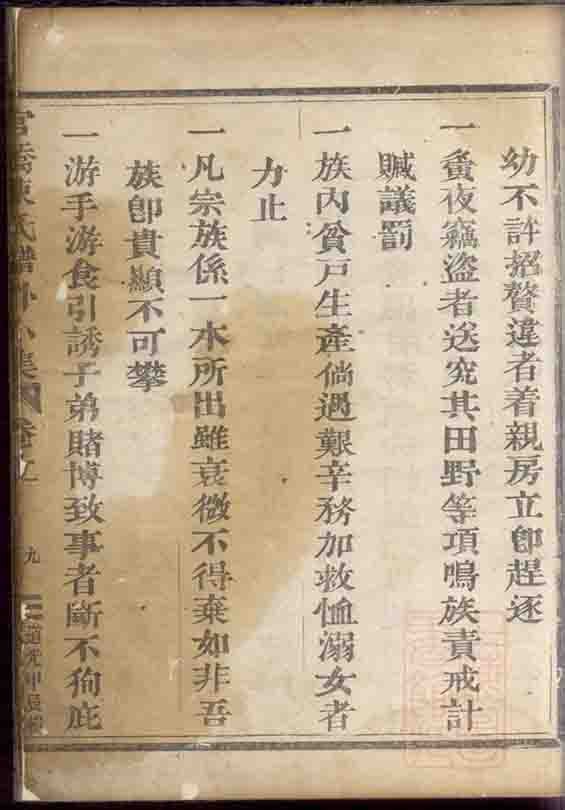 幼不許招贅違者着親房立卽趕逐
一夤夜竊盜者送究其田野等項鳴族責戒計
贓議罰
一族內貧戶生產倘遇艱辛務加救恤溺女者
力止
一凡宗族係一本所出雖衰微不得棄如非吾
族卽貴顯不可攀
一游手游食引誘子弟賭博致事者斷不徇庇
氏譜 九